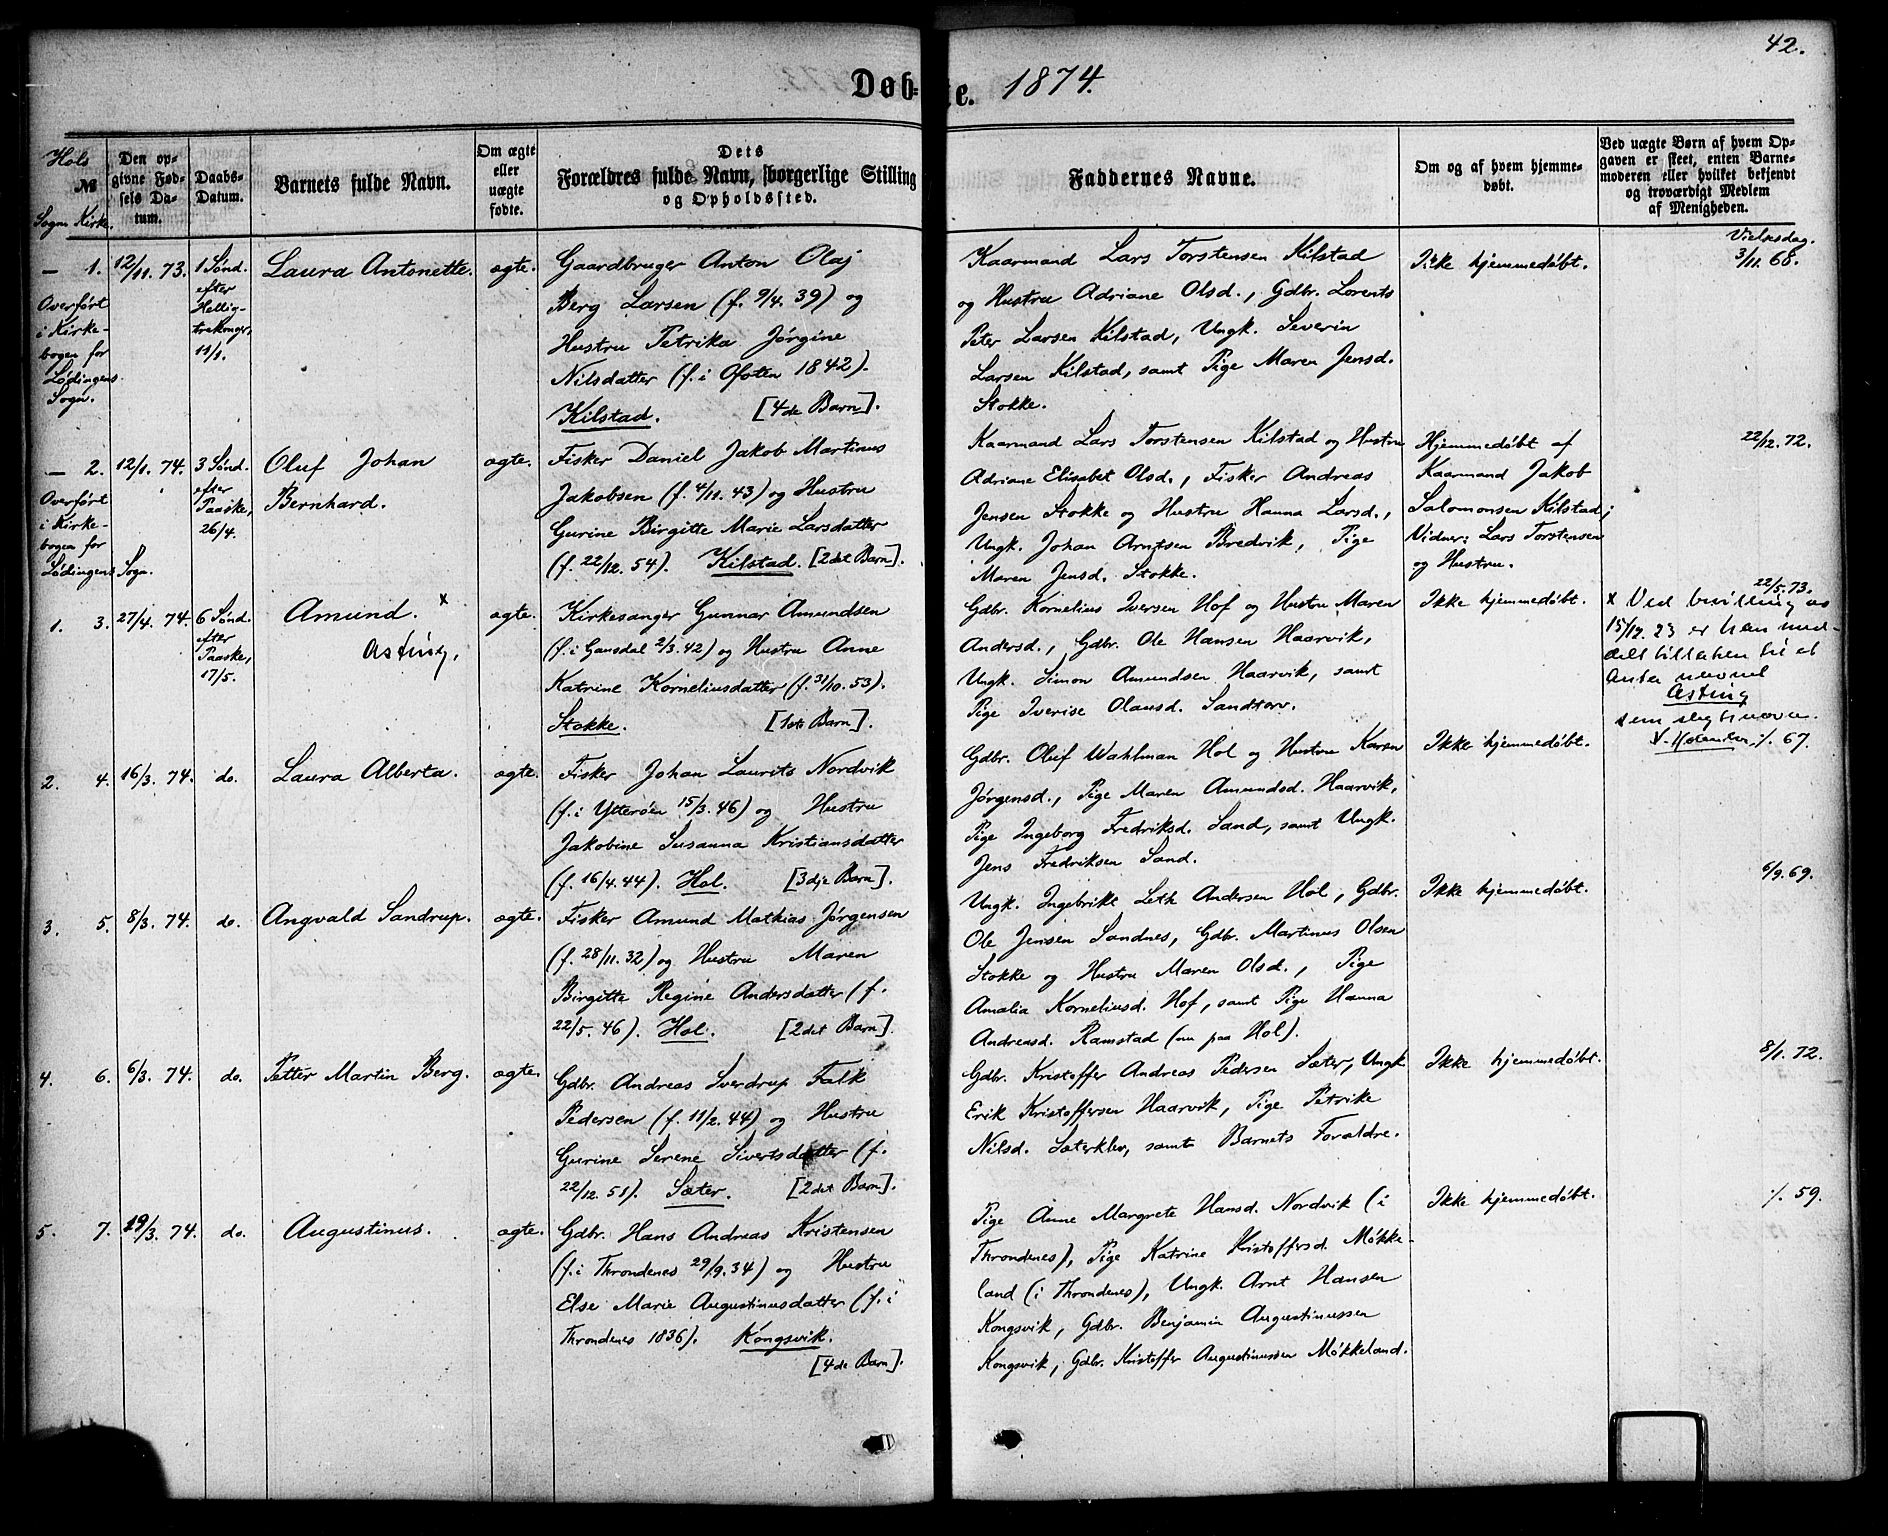 42.
Døb-te. 1874.
Hols
№
Sogn. Kirke.
Den op-
givne Fød-
sels Da-
tum.
Daabs-
Datum.
Barnets fulde Navn.
Om ægte
eller
uægte
fødte.
Dets
Forældres fulde Navn, borgerlige Stilling
og Opholdssted.
Faddernes Navne.
Om og af hvem hjemme-
døbt.
Ved uægte Børn af hvem Op-
gaven er skeet, enten Barne-
moderen eller hvilket bekjendt
og troværdigt Medlem
af Menigheden.
Vielsesdag.
— 1.
Overført
i Kirke-
bogen for
Lødingens
Sogn.
12/11. 73.
1 Sønd.
efter
Hellig-
trekonger,
11/1.
Laura Antonette.
ægte.
Gaardbruger Anton Olaj
Berg Larsen (f. 9/4. 39) og
Hustru Petrika Jørgine
Nilsdatter (f. i Ofoten 1842).
Kilstad. [4de Barn].
Kaarmand Lars Torstensen Kilstad
og Hustru Adriane Olsd., Gdbr. Lorents
Peter Larsen Kilstad, Ungk. Severin
Larsen Kilstad, samt Pige Maren Jensd.
Stokke.
Ikke hjemmedøbt.
3/11. 68.
— 2.
Overført
i Kirke-
bogen for
Lødingens Sogn.
12/1. 74.
3 Sønd.
efter
Paaske,
26/4.
Oluf Johan
Bernhard.
ægte.
Fisker Daniel Jakob Martinus
Jakobsen (f. 4/11. 43) og Hustru
Gurine Birgitte Marie Larsdatter
(f. 22/12. 54). Kilstad. [2det Barn].
Kaarmand Lars Torstensen Kilstad og Hustru
Adriane Elisabet Olsd., Fisker Andreas
Jensen Stokke og Hustru Hanna Larsd.,
Ungk. Johan Arntsen Bredvik, Pige
Maren Jensd. Stokke.
Hjemmedøbt af
Kaarmand Jakob
Salomonsen Kilstad;
Vidner: Lars Torstensen
og Hustru.
22/12. 72.
1. 3.
27/4. 74.
6 Sønd.
efter
Paaske,
17/5.
Amund. x
Asting.
ægte.
Kirkesanger Gunnar Amundsen
(f. i Gausdal 2/3. 42) og Hustru Anne
Katrine Korneliusdatter (f. 31/10. 53).
Stokke. [1ste Barn].
Gdbr. Kornelius Iversen Hof og Hustru Maren
Andersd., Gdbr. Ole Hansen Haarvik,
Ungk. Simon Amundsen Haarvik, samt
Pige Iverise Olausd. Sandtorv.
Ikke hjemmedøbt.
22/5. 73.
x Ved bevilling av
15/12. 23 er han med-
delt tillatelse til at
anta navnet
Asting
som slegtnavn.
2. 4.
16/3. 74.
do.
Laura Alberta.
ægte.
Fisker Johan Laurits Nordvik
(f. i Ytterøen 15/3. 46) og Hustru
Jakobine Susanna Kristiansdatter
(f. 16/4. 44). Hol. [3dje Barn].
Gdbr. Oluf Wahlman Hol og Hustru Karen
Jørgensd., Pige Maren Amundsd. Haarvik,
Pige Ingeborg Fredriksd. Sand, samt Ungk.
Jens Fredriksen Sand.
Ikke hjemmedøbt.
67.
3. 5.
8/3. 74.
do.
Angvald Sandrup.
ægte.
Fisker Amund Mathias Jørgensen
(f. 28/11. 32) og Hustru Maren
Birgitte Regine Andersdatter (f.
22/5. 46). Hol. [2det Barn].
Ungk. Ingebrikt Leth Andersen Hol, Gdbr.
Ole Jensen Sandnes, Gdbr. Martinus Olsen
Stokke og Hustru Maren Olsd., Pige
Amalia Korneliusd. Hof, samt Pige Hanna
Andreasd. Ramstad (nu paa Hol).
Ikke hjemmedøbt.
6/9. 69.
4. 6.
6/3. 74.
do.
Petter Martin Berg.
ægte.
Gdbr. Andreas Sverdrup Falk
Pedersen (f. 11/2. 44) og Hustru
Gurine Serene Sivertsdatter (f.
22/12. 51). Sæter. [2det Barn].
Gdbr. Kristoffer Andreas Pedersen Sæter, Ungk.
Erik Kristoffersen Haarvik, Pige Petrike
Nilsd. Sæterklev, samt Barnets Forældre.
Ikke hjemmedøbt.
8/1. 72.
5. 7.
19/3. 74.
do.
Augustinus.
ægte.
Gdbr. Hans Andreas Kristensen
(f. i Throndenes 29/9. 34) og Hustru
Else Marie Augustinusdatter (f. i
Throndenes 1836). Kongsvik.
[4de Barn].
Pige Anne Margrete Hansd. Nordvik (i
Throndenes), Pige Katrine Kristoffersd. Møkke-
land (i Throndenes), Ungk. Arnt Hansen
Kongsvik, Gdbr. Benjamin Augustinussen
Kongsvik, Gdbr. Kristoffer Augustinussen Møkkeland.
Ikke hjemmedøbt.
59.